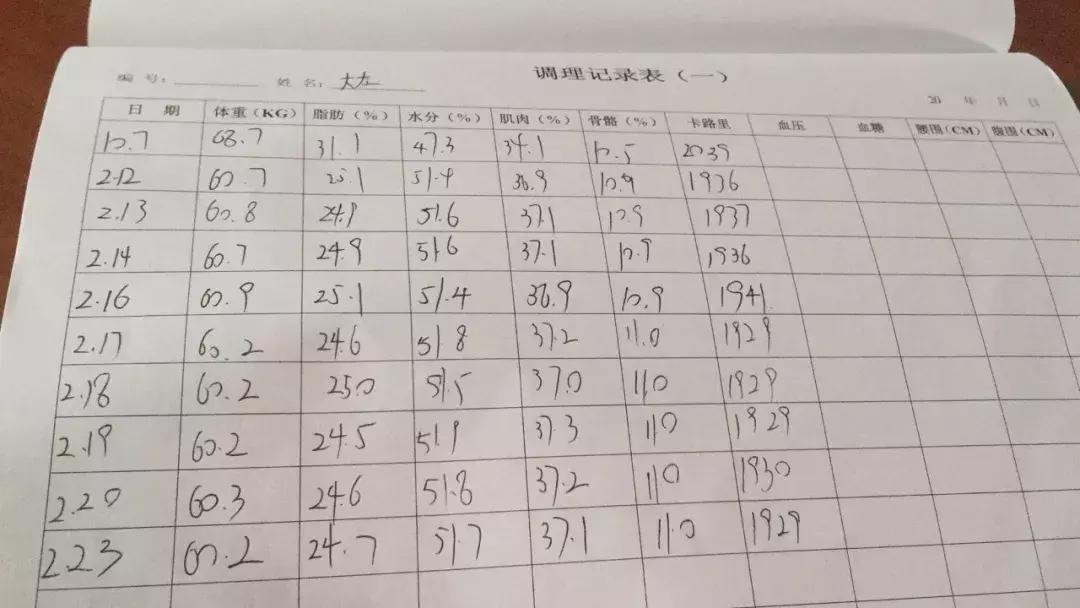 调理记录表（一）
编 号: 姓 名:
20 年 月 日
日 期 体重（KG） 脂肪（%） 水分（%） 肌肉（%） 骨骼（%） 卡路里 血压 血糖 腰围(CM) 腹围(CM)
10.7 68.7 31.1 47.3 34.1 10.5 2039
2.12 60.7 25.1 51.4 36.9 10.9 1936
2.13 60.8 24.9 51.6 37.1 10.9 1937
2.14 60.7 24.9 51.6 37.1 10.9 1936
2.16 60.9 25.1 51.4 36.9 10.9 1941
2.17 60.2 24.6 51.8 37.2 11.0 1929
2.18 60.2 25.0 51.5 37.0 11.0 1929
2.19 60.2 24.5 51.9 37.3 11.0 1929
2.20 60.3 24.6 51.8 37.2 11.0 1930
2.23 60.2 24.7 51.7 37.1 11.0 1929